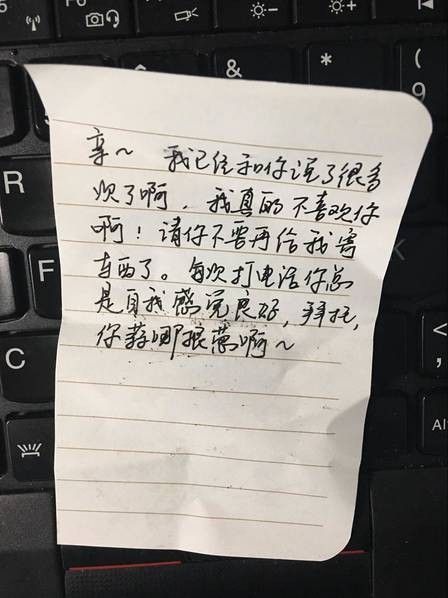 F6
&
*
(
9
R
F
C
亲~ 我已经和你说了很多
次了啊，我真的不喜欢你
啊！请你不要再给我寄
东西了。每次打电话你总
是自我感觉良好，拜托，
你算哪根葱啊~